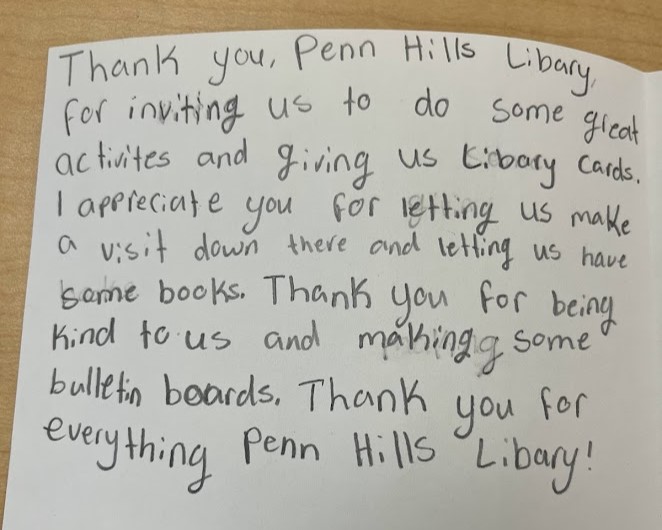 Thank you, Penn Hills Libary,
for inviting us to do some great
activites and giving us Libary cards.
I appreciate you for letting us make
a visit down there and letting us have
some books. Thank you for being
kind to us and making some
bulletin boards. Thank you for
everything Penn Hills Libary!